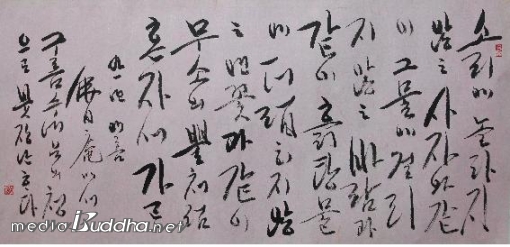 소리에 놀라지
않는 사자와 같
이 그물에 걸리
지 않는 바람과
같이 흙탕물
에 더럽히지 않
는 연꽃과 같이
무소의 뿔처럼
혼자서 가
佛日庵에서
청
으로
mediaBuddha.net